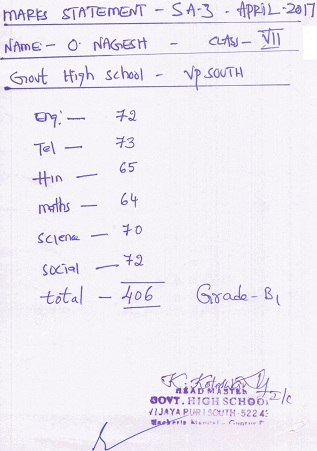 MARKS STATEMENT - SA-3 - APRIL-2017
NAME:- O. NAGESH - CLASS- VII
Govt High school - VP.SOUTH
Eng:- 72
Tel — 73
Hin — 65
maths — 64
Science — 70
Social — 72
total — 406 Grade - B1
HEAD MASTER I/C
GOVT. HIGH SCHOOL
VIJAYA PURI SOUTH-522 4